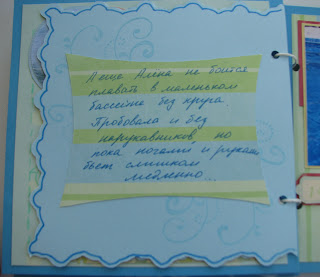 А еще Алена не боится
плавать в маленьком
бассейне без круга.
Пробовала и без
нарукавников, но
пока ногами и руками
бьет слишком
медленно...